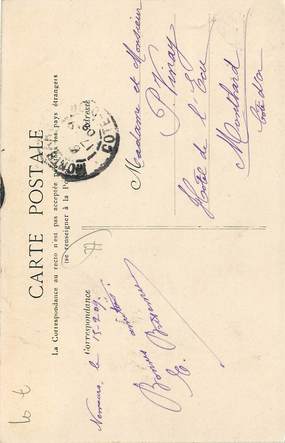 CARTE POSTALE
La Correspondance au recto n'est pas acceptée par tous les pays étrangers
(se renseigner à la Poste)
Correspondance
Adresse
le 15-2-09.
Bonnes amitiés
Madame et Monsieur
P. Vinay
Hôtel de l'Ecu
Montbard
Côte d'Or
MONTBARD
COTE
77